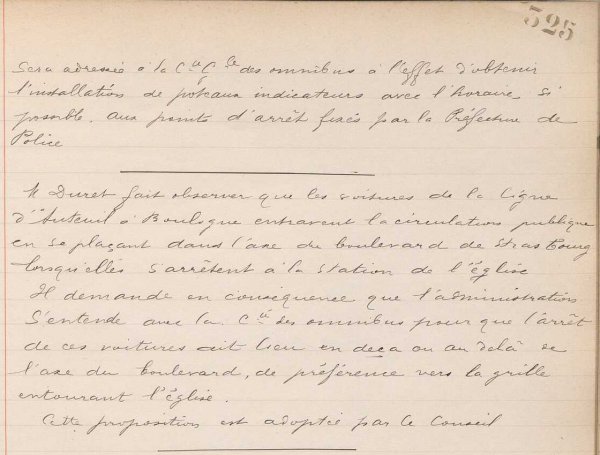 525
sera adressée à la Cie Gle des omnibus à l'effet d'obtenir
l'installation de poteaux indicateurs avec l'horaire si
possible. aux points d'arrêt fixés par la Préfecture de
Police
M Duret fait observer que les voitures de la ligne
d'Auteuil à Boulogne entravent la circulation publique
en se plaçant dans l'axe du boulevard de Strasbourg
lorsqu'elles s'arrêtent à la station de l'église
Il demande en conséquence que l'administration
s'entende avec la Cie des omnibus pour que l'arrêt
de ces voitures ait lieu en deça ou au delà de
l'axe du boulevard, de préférence vers la grille
entourant l'église.
Cette proposition est adoptée par le Conseil